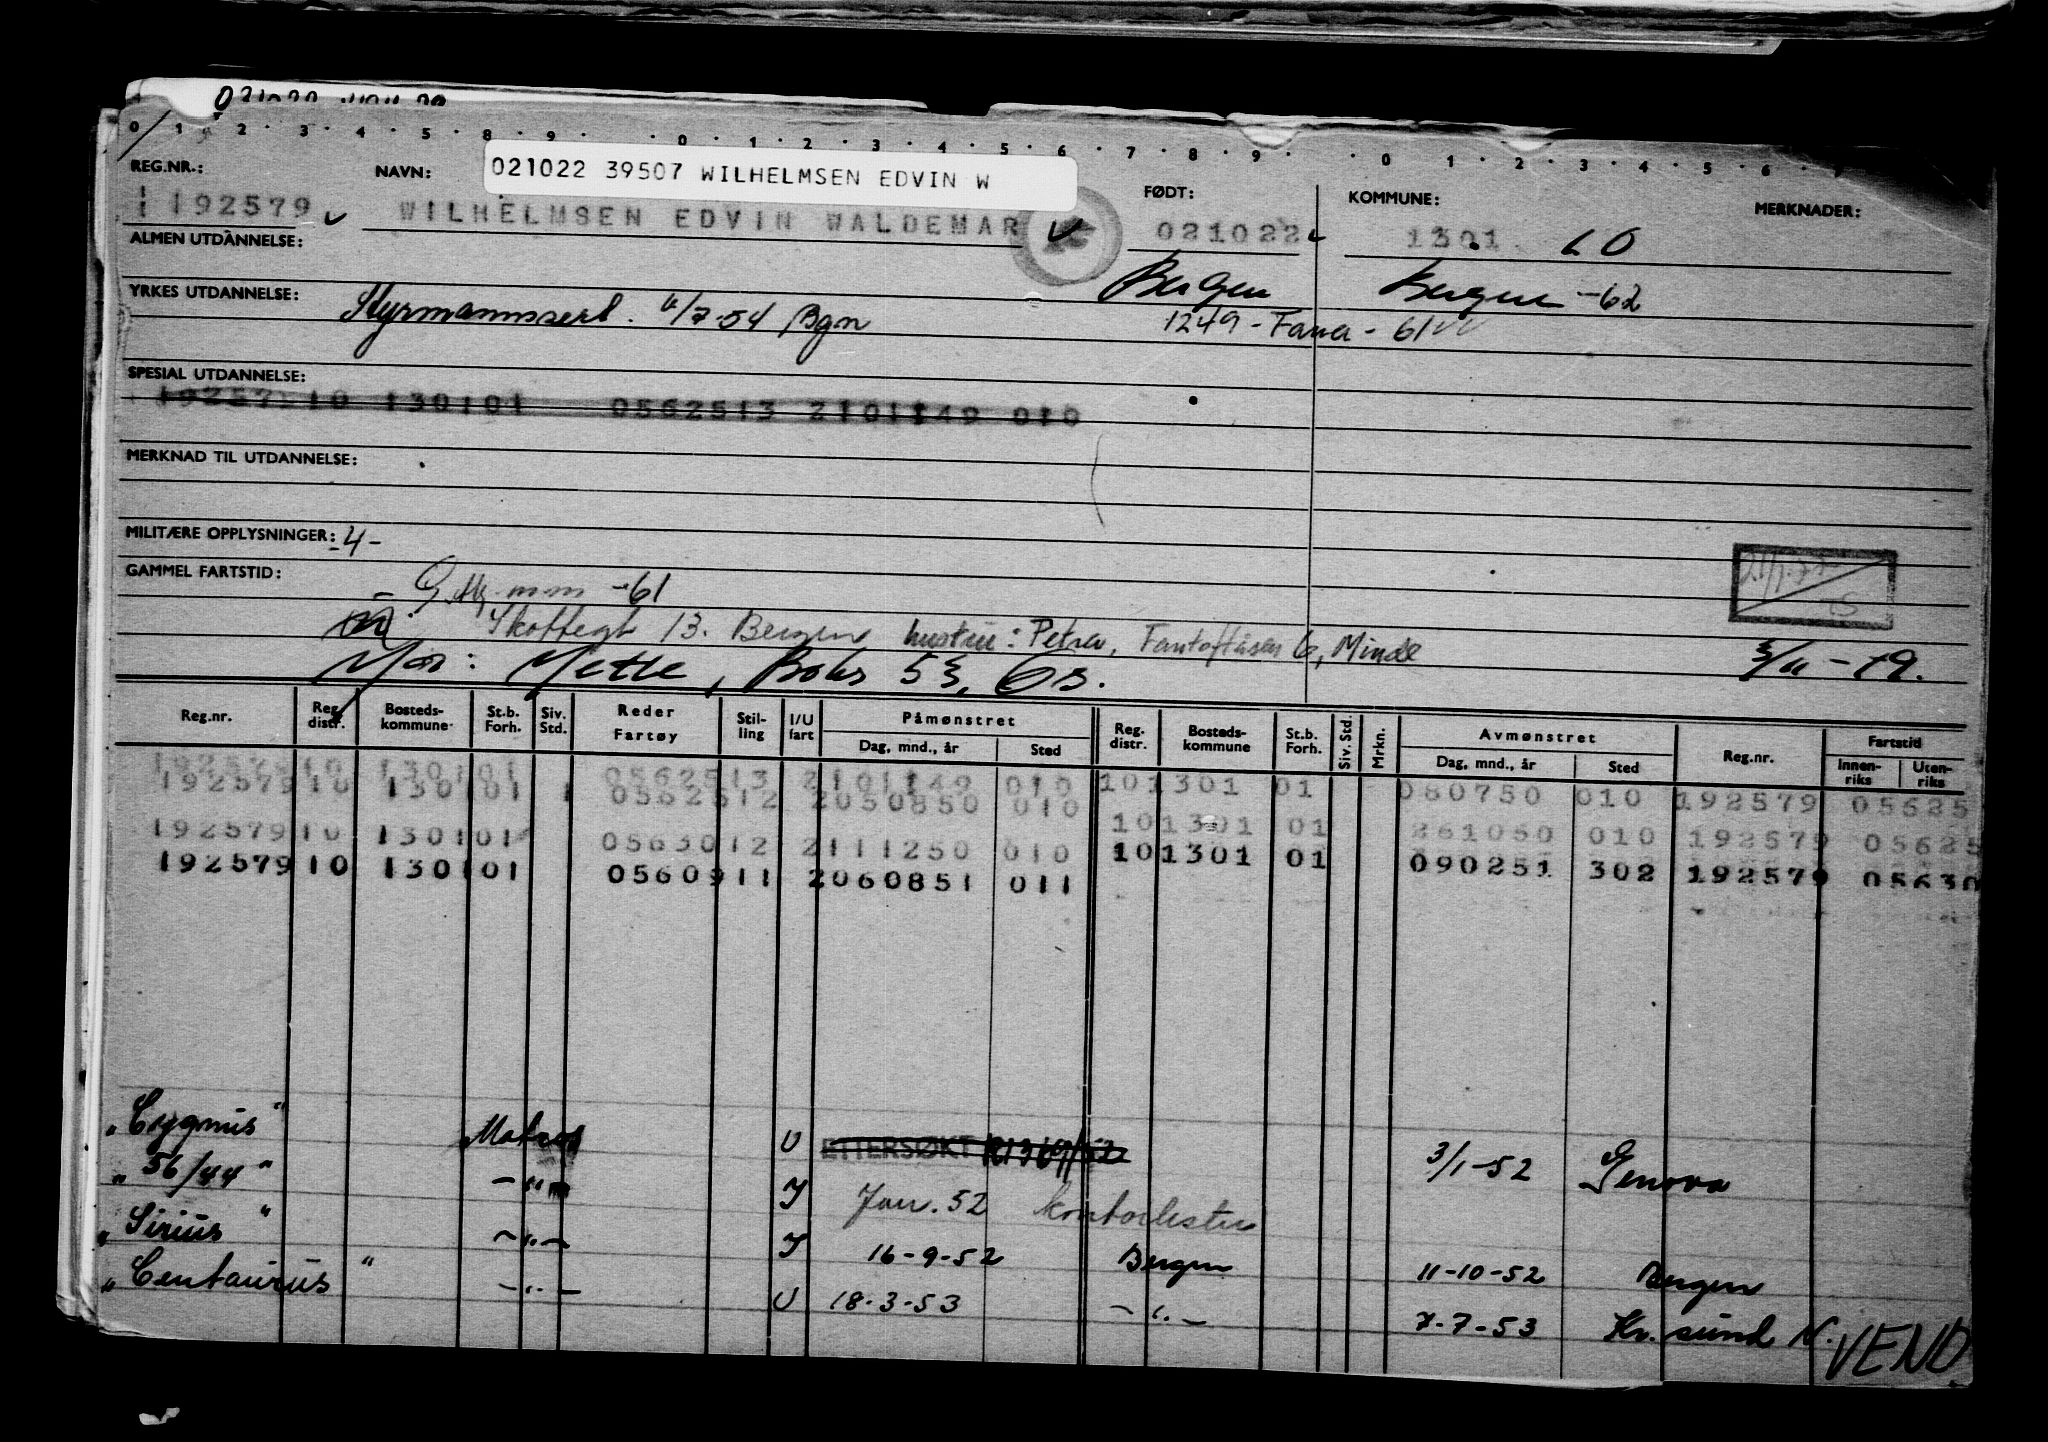 0 1 2 3 4 5 8 9 0 1 2 3 4 5 6 7 8 9 0 1 2 3 4 5 6
REG.NR.: NAVN: 021022 39507 WILHELMSEN EDVIN W FØDT: KOMMUNE: MERKNADER:
192579 WILHELMSEN EDVIN WALDEMAR 021022 1301 LO
ALMEN UTDANNELSE:
Bergen Bergen -62
YRKES UTDANNELSE: Styrmannssert. /7-54 Bgn 1249 - Fana - 61
SPESIAL UTDANNELSE:
192579 10 130101 0562513 2101149 010
MERKNAD TIL UTDANNELSE:
MILITÆRE OPPLYSNINGER: -4-
GAMMEL FARTSTID:
-61
13. Bergen hustru: Petra, Fantoftåsen 6, Minde
Mor: Mette, Boks 53, Os. -79.
Reg.nr. Reg. distr. Bosteds-kommune St.b. Forh. Siv. Std. Reder Fartøy Stil-ling I/U fart Påmønstret Reg. distr. Bosteds-kommune St.b. Forh. Siv. Std. Mrkn. Avmønstret Reg.nr. Fartstid
Dag, mnd., år Sted Dag, mnd., år Sted Innen-riks Uten-riks
192579 10 130101 0562513 2101149 010 101301 01 080750 010 192579 05625
192579 10 130101 1 0562512 2050850 010 101301 01 261050 010 192579 05625
192579 10 130101 0563012 2111250 010 101301 01 090251 302 192579 05630
192579 10 130101 0560911 2060851 011
"Cygnus" Matros U ETTERSØKT 3/1-52 Genova
"56/44" -"- I Jan. 52
"Sirius" -"- I 16-9-52 Bergen 11-10-52 Bergen
"Centaurus" -"- U 18-3-53 -"- 7-7-53 Kr. sund N.
VEND